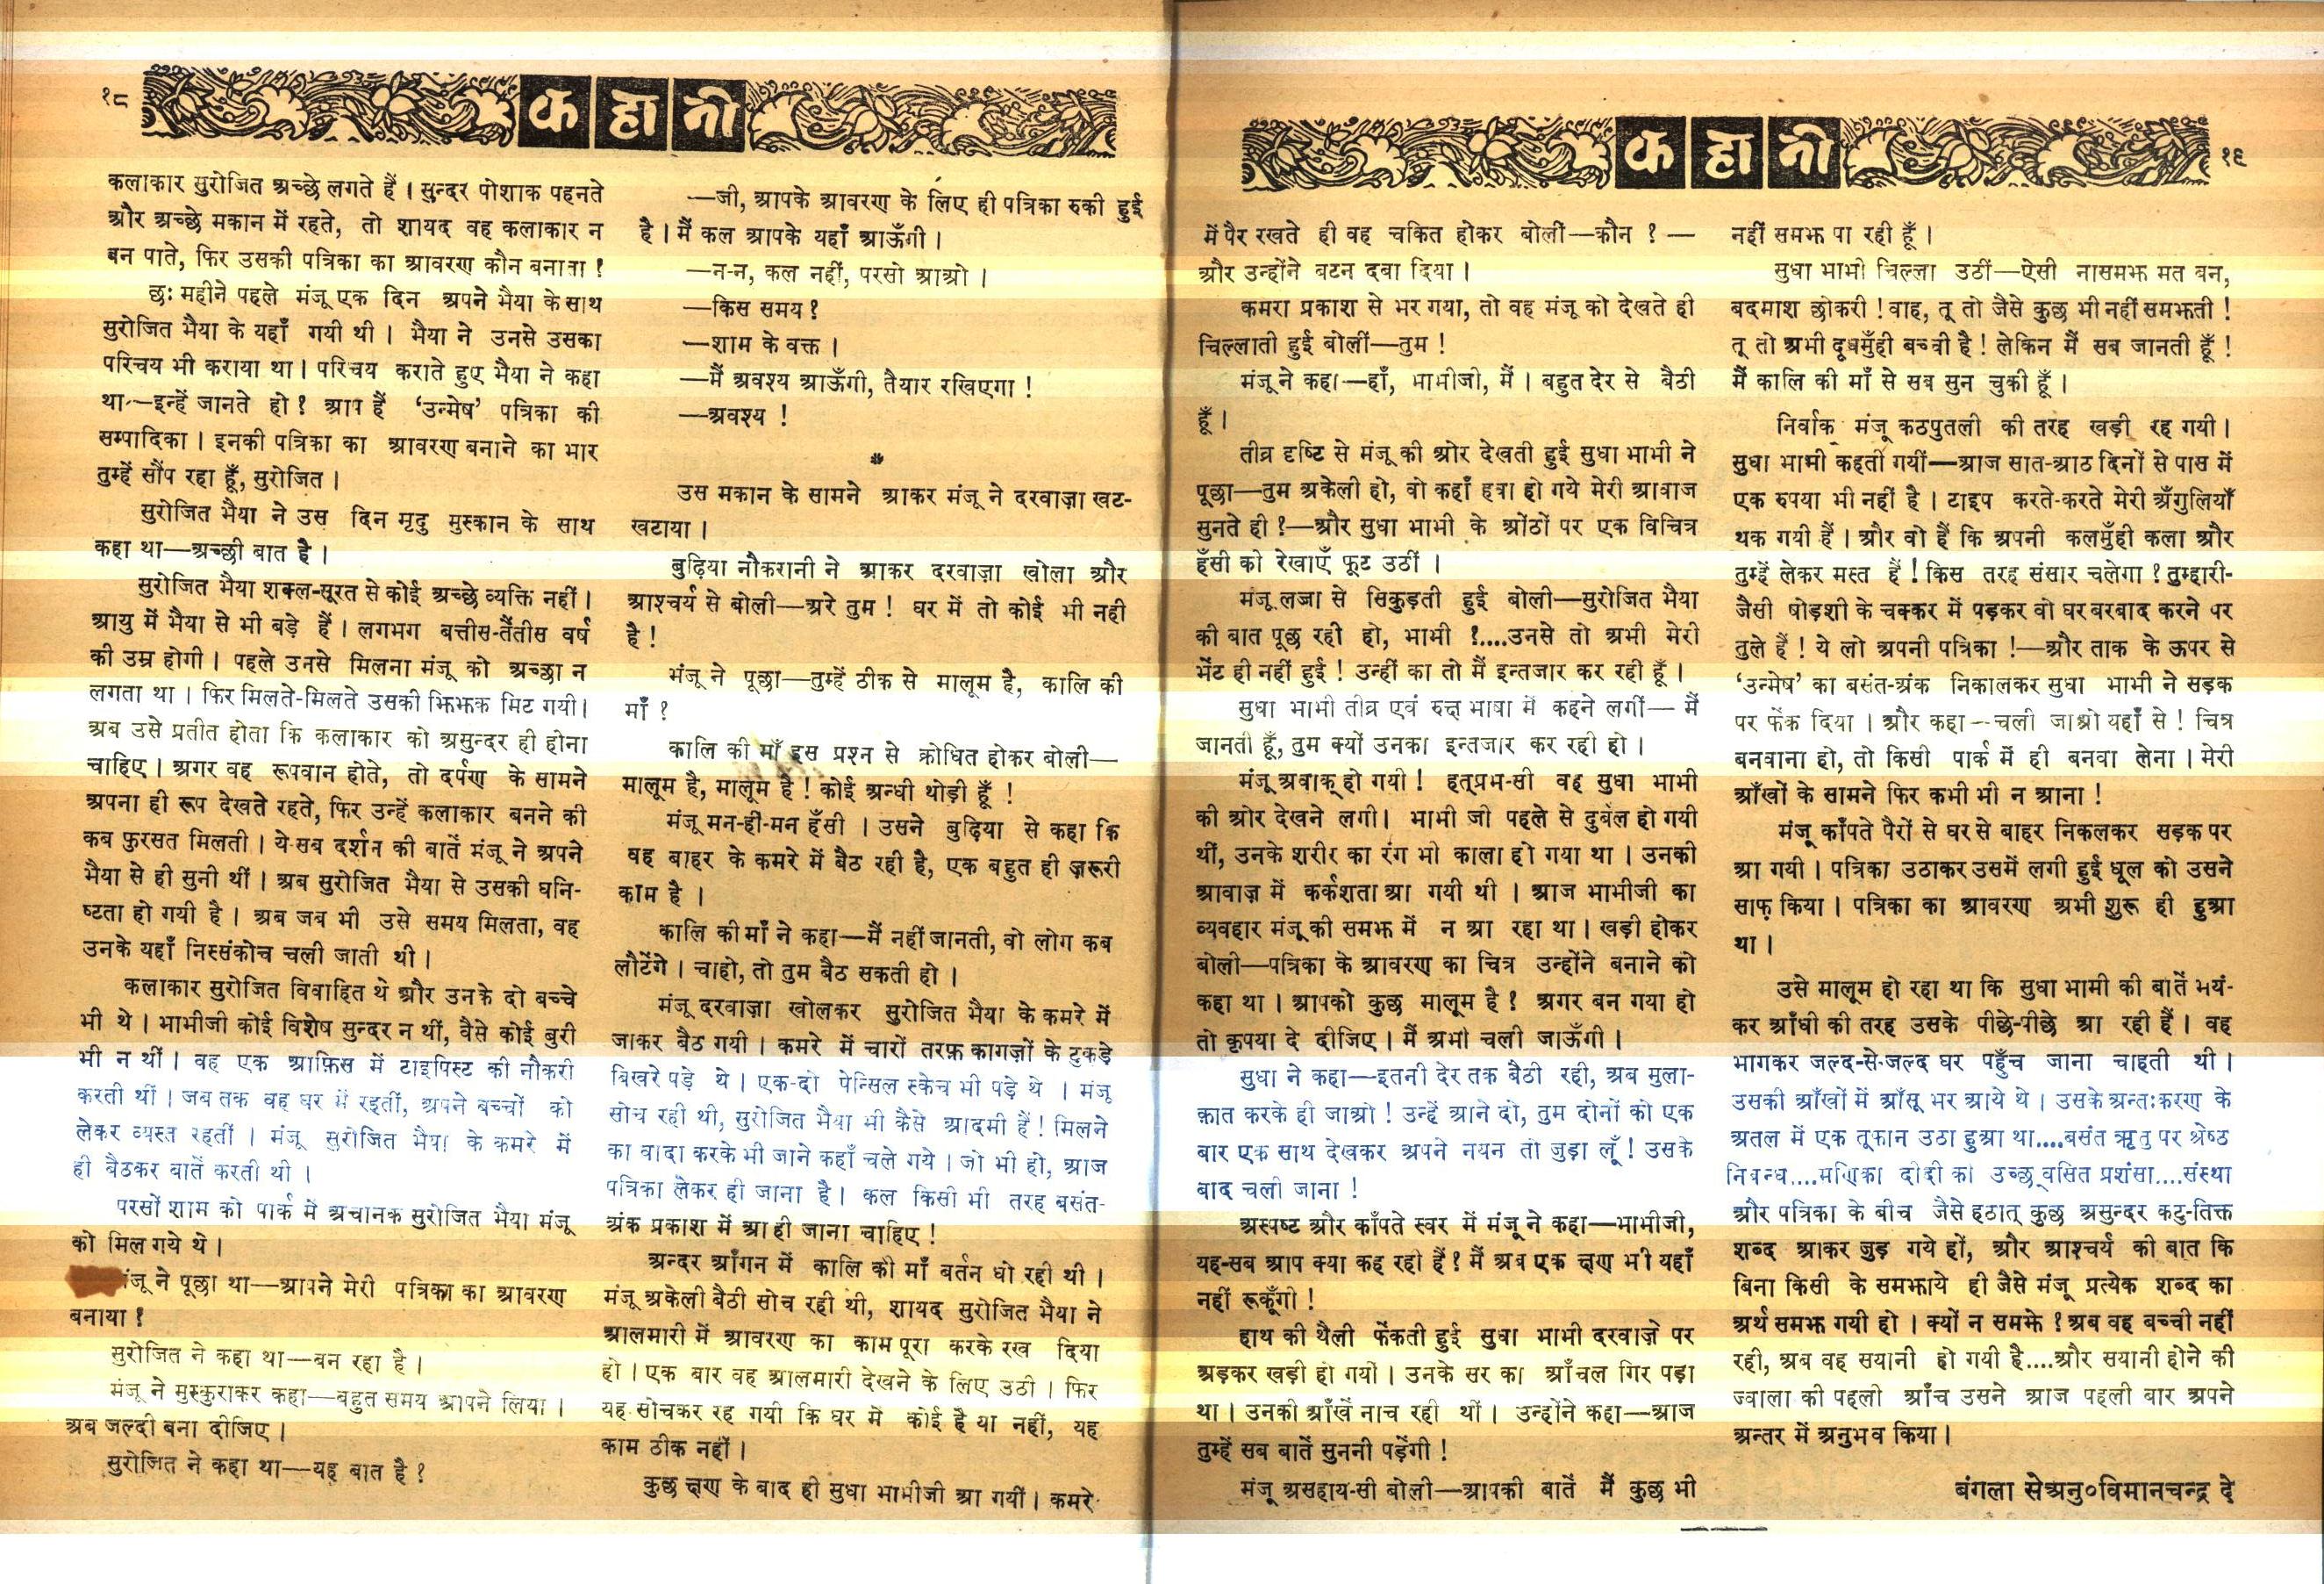 १८
कहानी
कलाकार सुरोजित अच्छे लगते हैं । सुन्दर पोशाक पहनते
और अच्छे मकान में रहते, तो शायद वह कलाकार न
बन पाते, फिर उसकी पत्रिका का आवरण कौन बनाता !
छः महीने पहले मंजू एक दिन अपने भैया के साथ
सुरोजित भैया के यहाँ गयी थी । भैया ने उनसे उसका
परिचय भी कराया था । परिचय कराते हुए भैया ने कहा
था—इन्हें जानते हो ? आप हैं ‘उन्मेष’ पत्रिका की
सम्पादिका । इनकी पत्रिका का आवरण बनाने का भार
तुम्हें सौंप रहा हूँ, सुरोजित ।
सुरोजित भैया ने उस दिन मृदु मुस्कान के साथ
कहा था—अच्छी बात है ।
सुरोजित भैया शक्ल-सूरत से कोई अच्छे व्यक्ति नहीं ।
आयु में भैया से भी बड़े हैं । लगभग बत्तीस-तैंतीस वर्ष
की उम्र होगी । पहले उनसे मिलना मंजू को अच्छा न
लगता था । फिर मिलते-मिलते उसकी झिझक मिट गयी ।
अब उसे प्रतीत होता कि कलाकार को असुन्दर ही होना
चाहिए । अगर वह रूपवान होते, तो दर्पण के सामने
अपना ही रूप देखते रहते, फिर उन्हें कलाकार बनने की
कब फुरसत मिलती । ये सब दर्शन की बातें मंजू ने अपने
भैया से ही सुनी थीं । अब सुरोजित भैया से उसकी घनि-
ष्टता हो गयी है । अब जब भी उसे समय मिलता, वह
उनके यहाँ निस्संकोच चली जाती थी ।
कलाकार सुरोजित विवाहित थे और उनके दो बच्चे
भी थे । भाभीजी कोई विशेष सुन्दर न थीं, वैसे कोई बुरी
भी न थीं । वह एक आफ़िस में टाइपिस्ट की नौकरी
करती थीं । जब तक वह घर में रहतीं, अपने बच्चों को
लेकर व्यस्त रहतीं । मंजू सुरोजित भैया के कमरे में
ही बैठकर बातें करती थी ।
परसों शाम को पार्क में अचानक सुरोजित भैया मंजू
को मिल गये थे ।
मंजू ने पूछा था—आपने मेरी पत्रिका का आवरण
बनाया ?
सुरोजित ने कहा था—बन रहा है ।
मंजू ने मुस्कुराकर कहा—बहुत समय आपने लिया ।
अब जल्दी बना दीजिए ।
सुरोजित ने कहा था—यह बात है ?
—जी, आपके आवरण के लिए ही पत्रिका रुकी हुई
है । मैं कल आपके यहाँ आऊँगी ।
—न-न, कल नहीं, परसो आओ ।
—किस समय ?
—शाम के वक्त ।
—मैं अवश्य आऊँगी, तैयार रखिएगा !
—अवश्य !
*
उस मकान के सामने आकर मंजू ने दरवाज़ा खट-
खटाया ।
बुढ़िया नौकरानी ने आकर दरवाज़ा खोला और
आश्चर्य से बोली—अरे तुम ! घर में तो कोई भी नही
है !
मंजू ने पूछा—तुम्हें ठीक से मालूम है, कालि की
माँ ?
कालि की माँ इस प्रश्न से क्रोधित होकर बोली—
मालूम है, मालूम है ! कोई अन्धी थोड़ी हूँ !
मंजू मन-ही-मन हँसी । उसने बुढ़िया से कहा कि
वह बाहर के कमरे में बैठ रही है, एक बहुत ही ज़रूरी
काम है ।
कालि की माँ ने कहा—मैं नहीं जानती, वो लोग कब
लौटेंगे । चाहो, तो तुम बैठ सकती हो ।
मंजू दरवाज़ा खोलकर सुरोजित भैया के कमरे में
जाकर बैठ गयी । कमरे में चारों तरफ़ कागज़ों के टुकड़े
बिखरे पड़े थे । एक-दो पेन्सिल स्केच भी पड़े थे । मंजू
सोच रही थी, सुरोजित भैया भी कैसे आदमी हैं ! मिलने
का वादा करके भी जाने कहाँ चले गये । जो भी हो, आज
पत्रिका लेकर ही जाना है । कल किसी भी तरह बसंत-
अंक प्रकाश में आ ही जाना चाहिए !
अन्दर आँगन में कालि की माँ बर्तन धो रही थी ।
मंजू अकेली बैठी सोच रही थी, शायद सुरोजित भैया ने
आलमारी में आवरण का काम पूरा करके रख दिया
हो । एक बार वह आलमारी देखने के लिए उठी । फिर
यह सोचकर रह गयी कि घर में कोई है या नहीं, यह
काम ठीक नहीं ।
कुछ क्षण के बाद ही सुधा भाभीजी आ गयीं । कमरे
कहानी
१९
में पैर रखते ही वह चकित होकर बोलीं—कौन ? —
और उन्होंने बटन दबा दिया ।
कमरा प्रकाश से भर गया, तो वह मंजू को देखते ही
चिल्लाती हुई बोलीं—तुम !
मंजू ने कहा—हाँ, भाभीजी, मैं । बहुत देर से बैठी
हूँ ।
तीव्र दृष्टि से मंजू की ओर देखती हुई सुधा भाभी ने
पूछा—तुम अकेली हो, वो कहाँ हवा हो गये मेरी आवाज
सुनते ही ?—और सुधा भाभी के ओंठों पर एक विचित्र
हँसी की रेखाएँ फूट उठीं ।
मंजू लज्जा से सिकुड़ती हुई बोली—सुरोजित भैया
की बात पूछ रही हो, भाभी ?....उनसे तो अभी मेरी
भेंट ही नहीं हुई ! उन्हीं का तो मैं इन्तजार कर रही हूँ ।
सुधा भाभी तीव्र एवं रुक्ष भाषा में कहने लगीं— मैं
जानती हूँ, तुम क्यों उनका इन्तजार कर रही हो ।
मंजू अवाक् हो गयी ! हत्प्रभ-सी वह सुधा भाभी
की ओर देखने लगी । भाभी जी पहले से दुर्बल हो गयी
थीं, उनके शरीर का रंग भी काला हो गया था । उनकी
आवाज़ में कर्कशता आ गयी थी । आज भाभीजी का
व्यवहार मंजू की समझ में न आ रहा था । खड़ी होकर
बोली—पत्रिका के आवरण का चित्र उन्होंने बनाने को
कहा था । आपको कुछ मालूम है ? अगर बन गया हो
तो कृपया दे दीजिए । मैं अभी चली जाऊँगी ।
सुधा ने कहा—इतनी देर तक बैठी रही, अब मुला-
क़ात करके ही जाओ ! उन्हें आने दो, तुम दोनों को एक
बार एक साथ देखकर अपने नयन तो जुड़ा लूँ ! उसके
बाद चली जाना !
अस्पष्ट और काँपते स्वर में मंजू ने कहा—भाभीजी,
यह-सब आप क्या कह रही हैं ? मैं अब एक क्षण भी यहाँ
नहीं रूकूँगी !
हाथ की थैली फेंकती हुई सुधा भाभी दरवाज़े पर
अड़कर खड़ी हो गयीं । उनके सर का आँचल गिर पड़ा
था । उनकी आँखें नाच रही थीं । उन्होंने कहा—आज
तुम्हें सब बातें सुननी पड़ेंगी !
मंजू असहाय-सी बोली—आपकी बातें मैं कुछ भी
नहीं समझ पा रही हूँ ।
सुधा भाभी चिल्ला उठीं—ऐसी नासमझ मत बन,
बदमाश छोकरी ! वाह, तू तो जैसे कुछ भी नहीं समझती !
तू तो अभी दूधमुँही बच्ची है ! लेकिन मैं सब जानती हूँ !
मैं कालि की माँ से सब सुन चुकी हूँ ।
निर्वाक मंजू कठपुतली की तरह खड़ी रह गयी ।
सुधा भाभी कहती गयीं—आज सात-आठ दिनों से पास में
एक रुपया भी नहीं है । टाइप करते-करते मेरी अँगुलियाँ
थक गयी हैं । और वो हैं कि अपनी कलमुँही कला और
तुम्हें लेकर मस्त हैं ! किस तरह संसार चलेगा ? तुम्हारी-
जैसी षोड़शी के चक्कर में पड़कर वो घर बरबाद करने पर
तुले हैं ! ये लो अपनी पत्रिका !—और ताक के ऊपर से
‘उन्मेष’ का बसंत-अंक निकालकर सुधा भाभी ने सड़क
पर फेंक दिया । और कहा—चली जाओ यहाँ से ! चित्र
बनवाना हो, तो किसी पार्क में ही बनवा लेना । मेरी
आँखों के सामने फिर कभी भी न आना !
मंजू काँपते पैरों से घर से बाहर निकलकर सड़क पर
आ गयी । पत्रिका उठाकर उसमें लगी हुई धूल को उसने
साफ़ किया । पत्रिका का आवरण अभी शुरू ही हुआ
था ।
उसे मालूम हो रहा था कि सुधा भाभी की बातें भयं-
कर आँधी की तरह उसके पीछे-पीछे आ रही हैं । वह
भागकर जल्द-से-जल्द घर पहुँच जाना चाहती थी ।
उसकी आँखों में आँसू भर आये थे । उसके अन्तःकरण के
अतल में एक तूफान उठा हुआ था....बसंत ऋतु पर श्रेष्ठ
निबन्ध....मणिका दीदी की उच्छ्वसित प्रशंसा....संस्था
और पत्रिका के बीच जैसे हठात् कुछ असुन्दर कटु-तिक्त
शब्द आकर जुड़ गये हों, और आश्चर्य की बात कि
बिना किसी के समझाये ही जैसे मंजू प्रत्येक शब्द का
अर्थ समझ गयी हो । क्यों न समझे ? अब वह बच्ची नहीं
रही, अब वह सयानी हो गयी है....और सयानी होने की
ज्वाला की पहली आँच उसने आज पहली बार अपने
अन्तर में अनुभव किया ।
बंगला से अनु० विमानचन्द्र दे